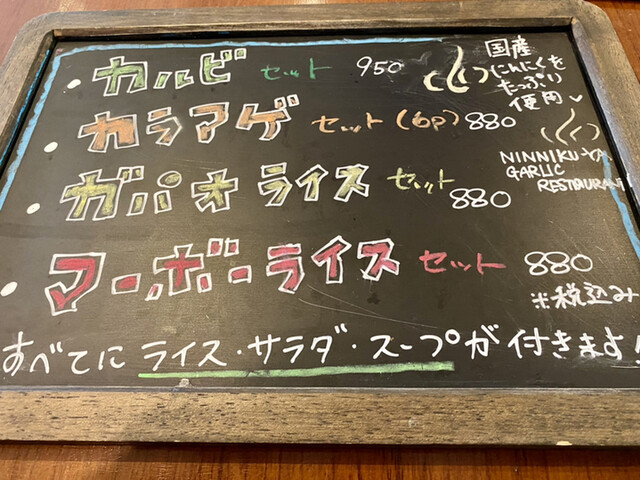 カルビ セット 950
カラアゲ セット(6p) 880
ガパオライス セット 880
マーボーライス セット 880
※税込み
すべてにライス・サラダ・スープが付きます!
国産
にんにくを
たっぷり
使用
NINNIKU-YA
GARLIC
RESTAURANT